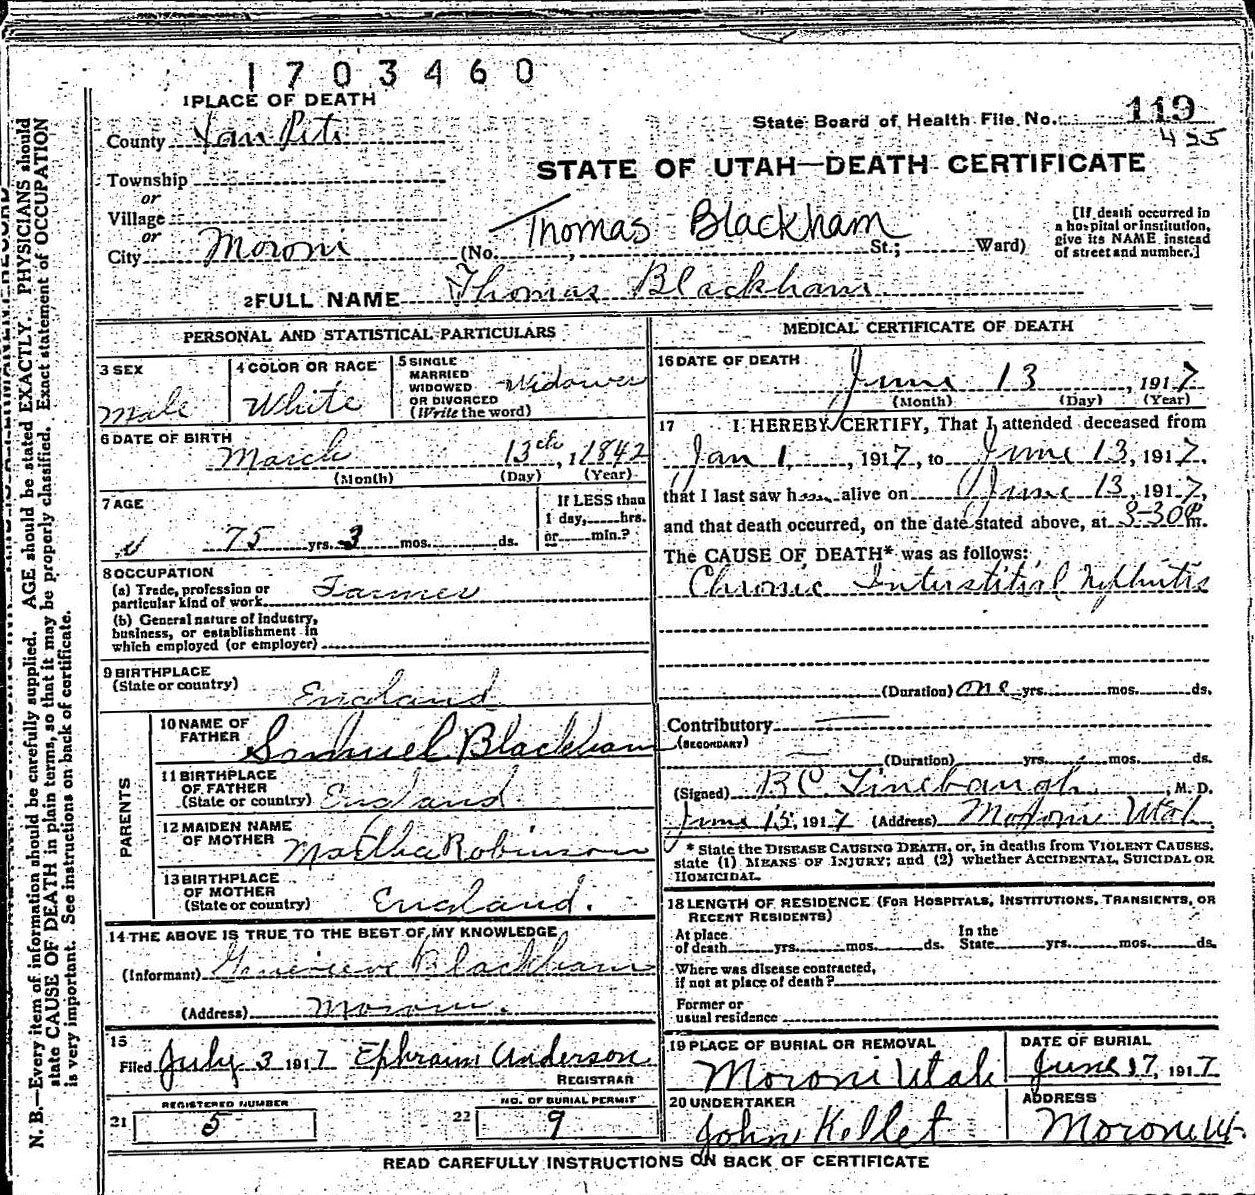 1703460
1 PLACE OF DEATH
County San Pete
State Board of Health File No. 119
425
STATE OF UTAH—DEATH CERTIFICATE
Township
or
Village
or
City Moroni (No. , St.; Ward)
Thomas Blackham
[If death occurred in
a hospital or institution,
give its NAME instead
of street and number.]
2 FULL NAME Thomas Blackham
PERSONAL AND STATISTICAL PARTICULARS
3 SEX
Male
4 COLOR OR RACE
White
5 SINGLE
MARRIED
WIDOWED
OR DIVORCED
(Write the word)
Widower
6 DATE OF BIRTH
March 13th, 1842
(Month) (Day) (Year)
7 AGE
75 yrs. 3 mos. ds.
If LESS than
1 day, hrs.
or min.?
8 OCCUPATION
(a) Trade, profession or
particular kind of work Farmer
(b) General nature of Industry,
business, or establishment in
which employed (or employer)
9 BIRTHPLACE
(State or country) England
PARENTS
10 NAME OF
FATHER Samuel Blackham
11 BIRTHPLACE
OF FATHER
(State or country) England
12 MAIDEN NAME
OF MOTHER Martha Robinson
13 BIRTHPLACE
OF MOTHER
(State or country) England.
14 THE ABOVE IS TRUE TO THE BEST OF MY KNOWLEDGE
(Informant) Genevieve Blackham
(Address) Moroni.
15
Filed July 3 1917 Ephraim Anderson
REGISTRAR
21 REGISTERED NUMBER
5
22 NO. OF BURIAL PERMIT
9
MEDICAL CERTIFICATE OF DEATH
16 DATE OF DEATH
June 13, 1917
(Month) (Day) (Year)
17 I HEREBY CERTIFY, That I attended deceased from
Jan 1, 1917, to June 13, 1917,
that I last saw him alive on June 13, 1917,
and that death occurred, on the date stated above, at 3-30 P m.
The CAUSE OF DEATH* was as follows:
Chronic Interstitial Nephritis
(Duration) one yrs. mos. ds.
Contributory
(SECONDARY)
(Duration) yrs. mos. ds.
(Signed) B C Linebaugh, M. D.
June 15, 1917 (Address) Moroni Utah
* State the DISEASE CAUSING DEATH, or, in deaths from VIOLENT CAUSES,
state (1) MEANS OF INJURY; and (2) whether ACCIDENTAL, SUICIDAL OR
HOMICIDAL.
18 LENGTH OF RESIDENCE (FOR HOSPITALS, INSTITUTIONS, TRANSIENTS, OR
RECENT RESIDENTS)
At place
of death yrs. mos. ds.
In the
State yrs. mos. ds.
Where was disease contracted,
if not at place of death?
Former or
usual residence
19 PLACE OF BURIAL OR REMOVAL
Moroni Utah
DATE OF BURIAL
June 17, 1917
20 UNDERTAKER
John Kellet
ADDRESS
Moroni Ut.
READ CAREFULLY INSTRUCTIONS ON BACK OF CERTIFICATE
N. B.—Every item of information should be carefully supplied. AGE should be stated EXACTLY. PHYSICIANS should
state CAUSE OF DEATH in plain terms, so that it may be properly classified. Exact statement of OCCUPATION
is very important. See instructions on back of certificate.